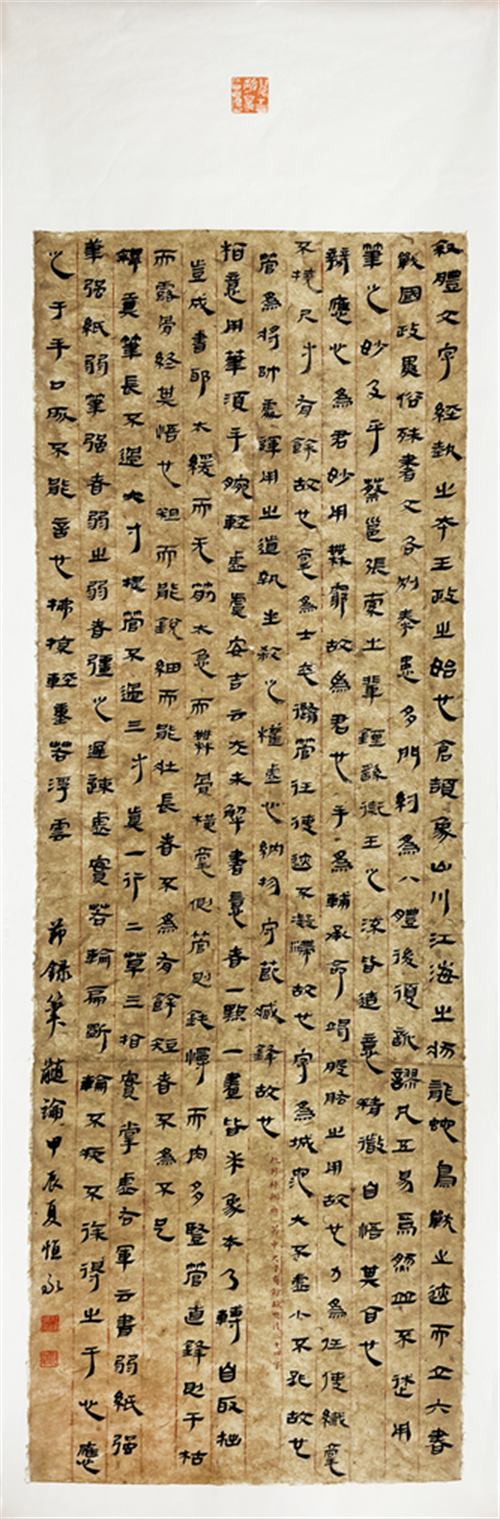 叙體文字經執之本王政之始也倉頡象山川江海之狀龍蛇鳥獸之迹而立六書
戰國政異俗殊書文各別秦患多門約為八體後復訛謬凡五易焉然並不述用
筆之妙及乎蔡邕張索之輩鍾繇衛王之流皆造意精微自悟其旨也
辯應心為君妙用無窮故為君也手為輔承命竭股肱之用故也力為任使纖毫
不撓尺寸有餘故也毫為士卒隨管任使迹不凝滯故也字為城池大不虛小不孤故也
管為將帥處運用之道執生殺之權虛心納物守節藏鋒故也
指意用筆須手腕輕虛虞安吉云夫未解書意者一點一畫皆求象本乃轉自取拙
豈成書耶太緩而无筋太急而無骨橫毫側管則鈍慢而肉多豎管直鋒則干枯
而露骨終其悟也粗而能銳細而能壯長者不為有餘短者不為不足
釋真筆長不過六寸捉管不過三寸真一行二草三指實掌虛右軍云書弱紙強
筆強紙弱筆強者弱之弱者彊之遲速虛實若輪扁斲輪不疾不徐得之于心應
之于手口所不能言也拂掠輕重若浮雲 節錄筆髓論甲辰夏恒永